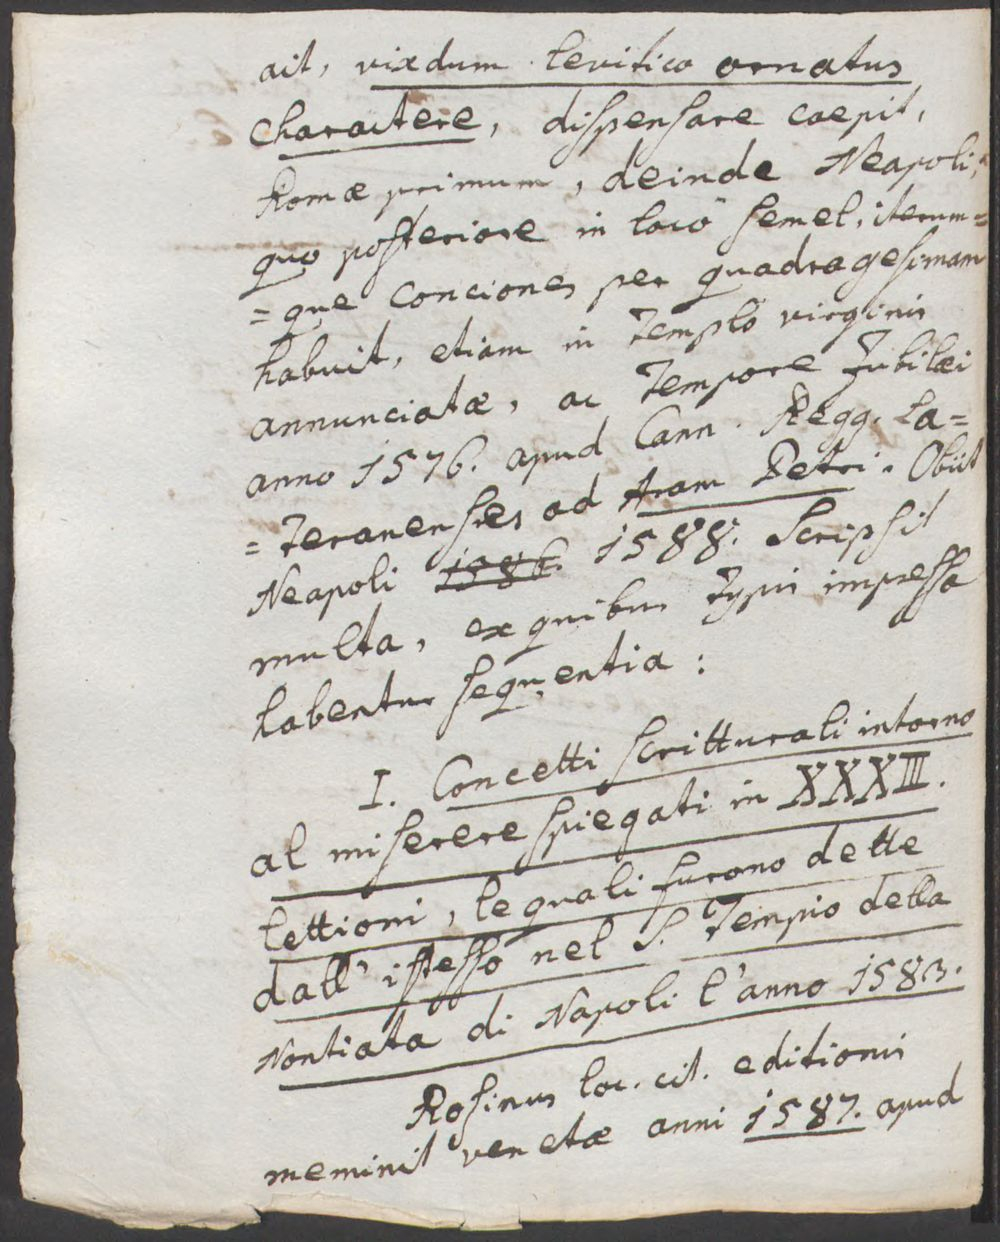 ait, vixdum levitico ornatus
charactere, dispensare caepit,
Romæ primum, deinde Neapoli;
quo posteriore in loco semel, iterum=
=que conciones per quadragesimam
habuit, etiam in Templo virginis
annunciatæ, ac Tempore Jubilæi
anno 1576. apud Cann. Regg. La=
=teranenses ad Aram Petri. Obiit
Neapoli 1586. 1588. Scripsit
multa, ex quibus typis impressa
habentur sequentia:
I. Concetti scritturali intorno
al miserere spiegati in XXXIII.
lettioni, le quali furono dette
dall' istesso nel S. Tempio della
Nontiata di Napoli l'anno 1583.
Rosinus loc. cit. editionis
meminit venetæ anni 1587. apud